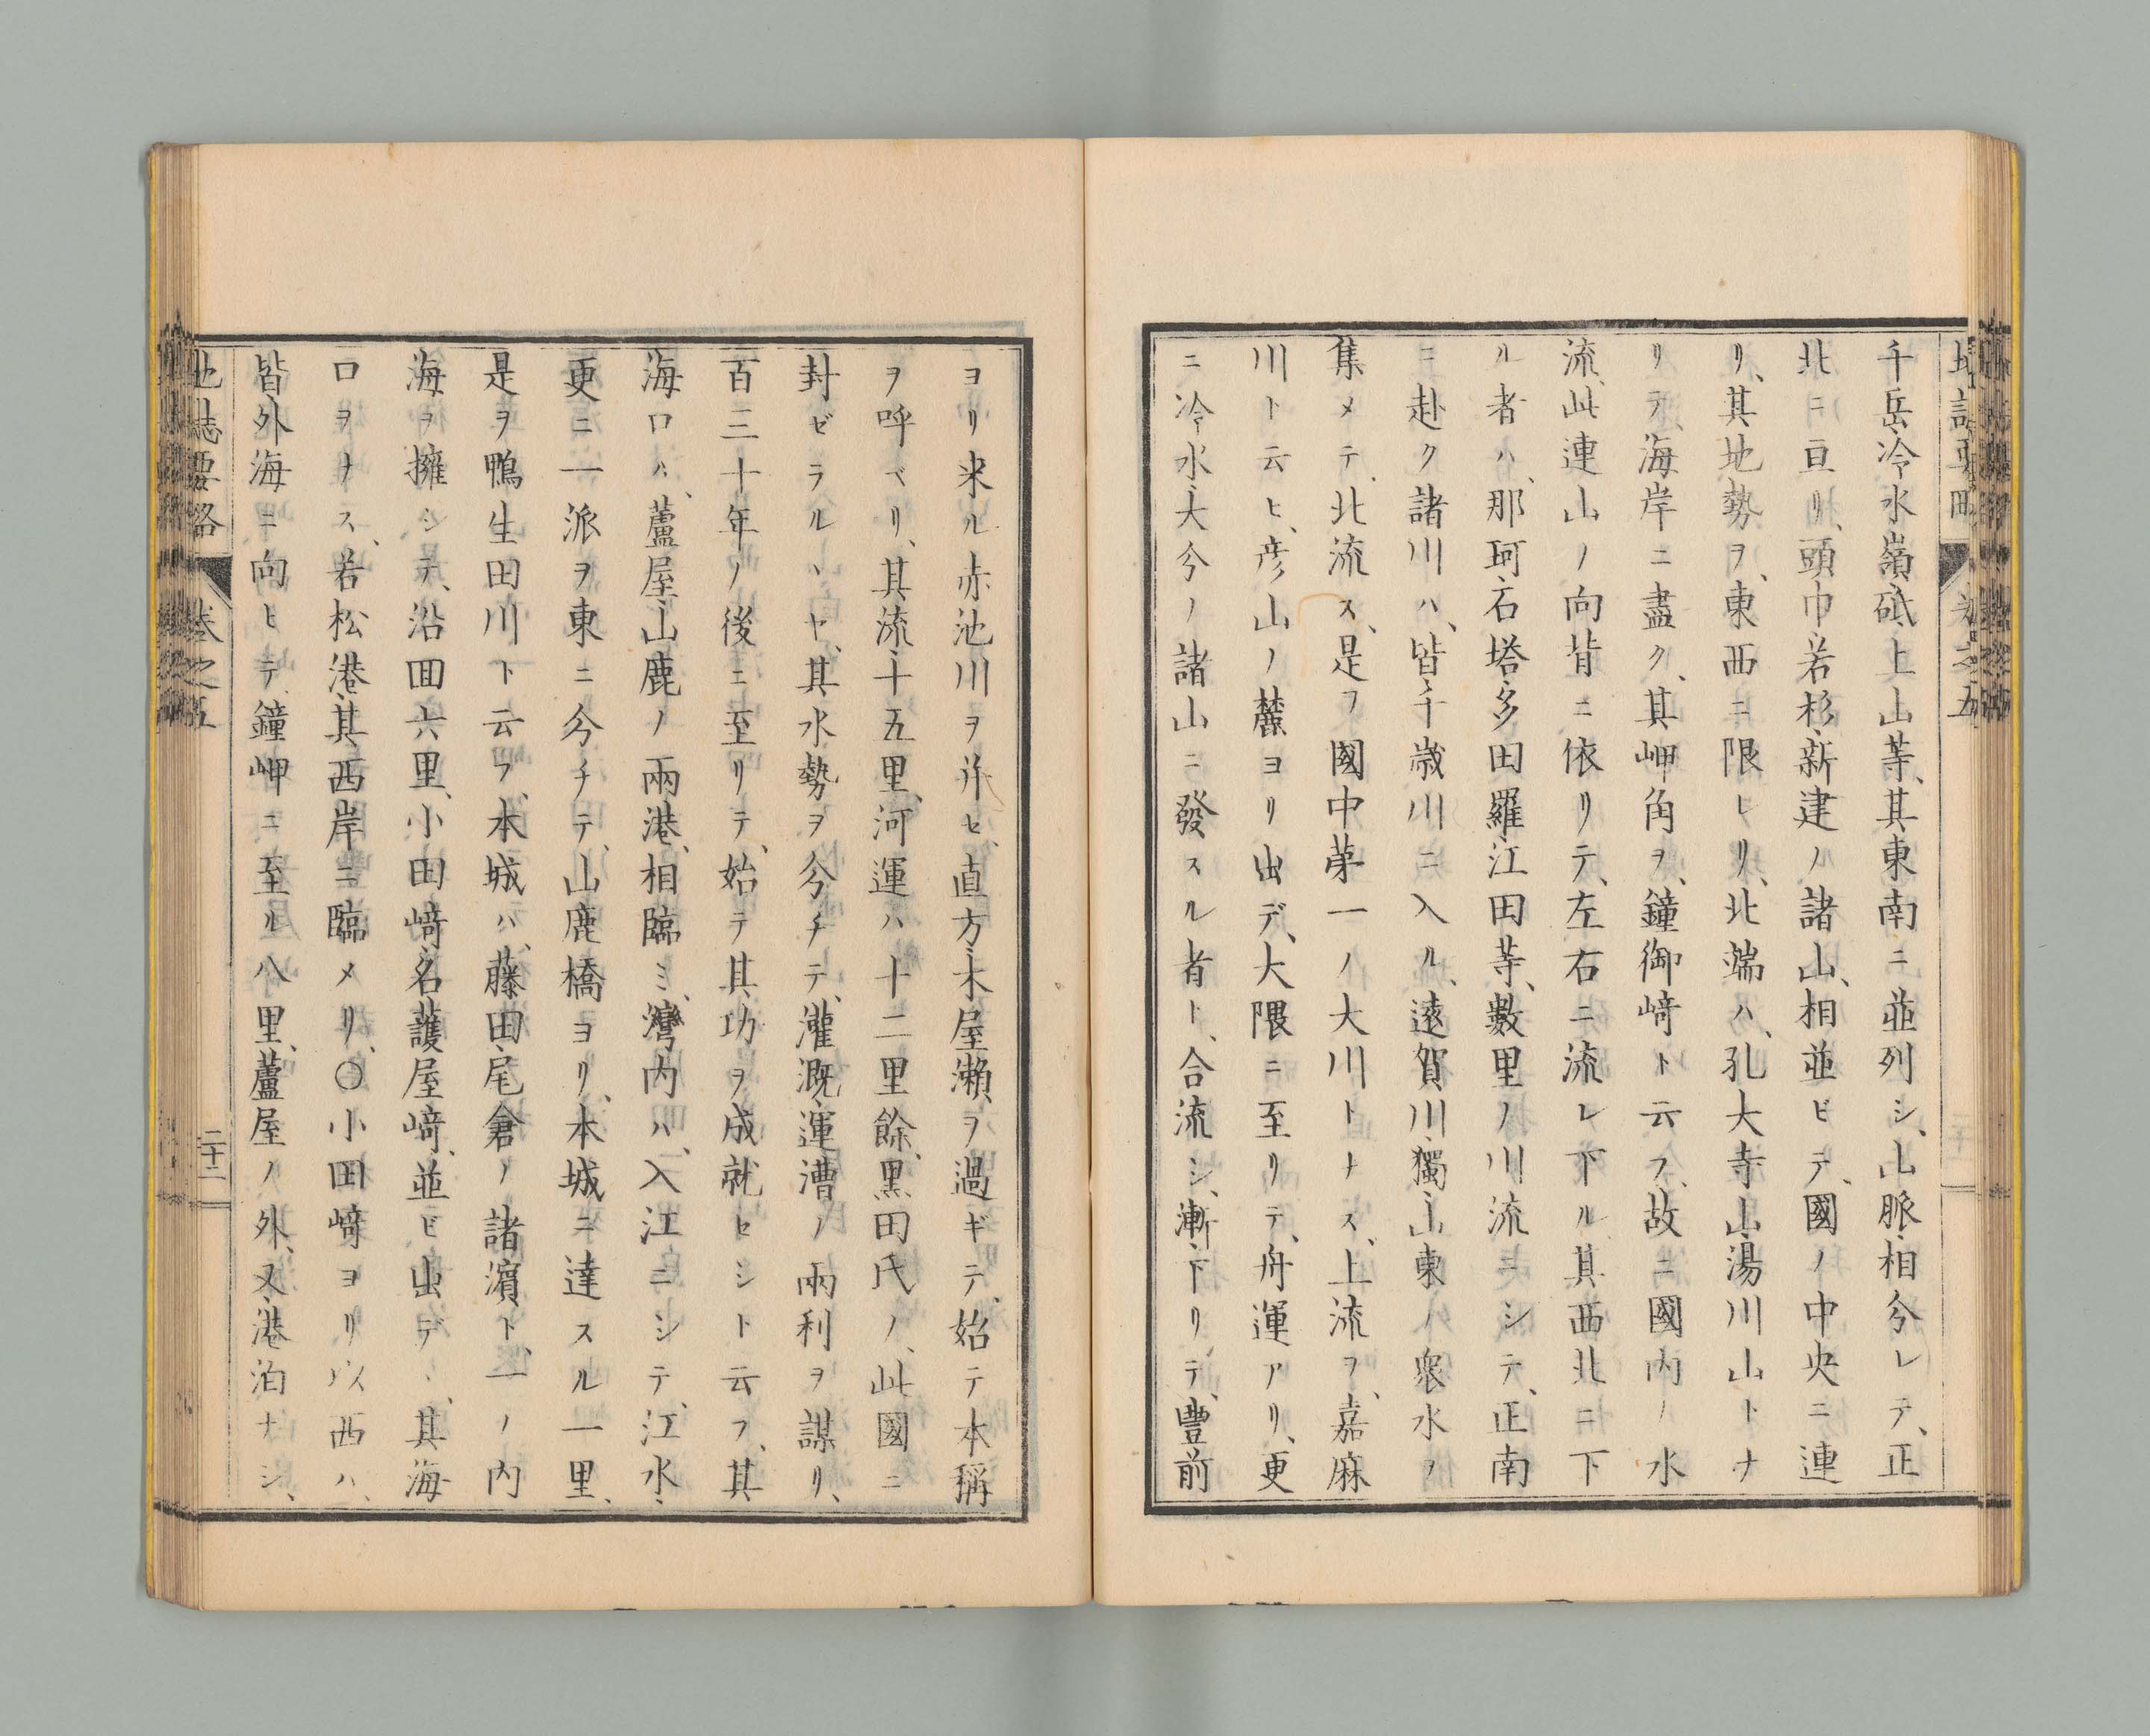 千岳冷水嶺砥上山等、其東南ニ並列シ、山脈相分レテ、正
北ニ亘リ、頭巾、若杉、新建ノ諸山、相並ビテ、國ノ中央ニ連
リ、其地勢ヲ、東西ニ限レリ、北端ハ、孔大寺山、湯川山トナ
リテ、海岸ニ盡ク、其岬角ヲ、鐘御﨑ト云フ、故ニ國内ノ水
流、此連山ノ向背ニ依リテ、左右ニ流レ下ル、其西北ニ下
ル者ハ、那珂、石塔、多田羅、江田等、數里ノ川流ニシテ、正南
ニ赴ク諸川ハ、皆千歳川ニ入ル、遠賀川、獨山東ノ衆水ヲ
集メテ、北流ス、是ヲ國中第一ノ大川トナス、上流ヲ、嘉麻
川ト云ヒ、彦山ノ麓ヨリ出デ、大隈ニ至リテ、舟運アリ、更
ニ冷水、大分ノ諸山ニ發スル者ト、合流シ、漸下リテ、豊前
ヨリ来ル赤池川ヲ并セ、直方、木屋瀬ヲ過ギテ、始テ本稱
ヲ呼ベリ、其流十五里、河運ハ十二里餘、黒田氏ノ、此國ニ
封ゼラルヽヤ、其水勢ヲ分チテ、灌漑、運漕ノ兩利ヲ謀リ、
百三十年ノ後ニ至リテ、始テ其功ヲ成就セシト云フ、其
海口ハ、蘆屋、山鹿ノ兩港、相臨ミ、灣内ハ、入江ニシテ、江水、
更ニ一派ヲ東ニ分チテ、山鹿橋ヨリ、本城ニ達スル一里、
是ヲ鴨生田川ト云フ、本城ハ、藤田、尾倉ノ諸濱ト、一ノ内
海ヲ擁シテ、沿回六里、小田﨑、名護屋﨑、並ビ出デヽ、其海
口ヲナス、若松港、其西岸ニ臨メリ、〇小田﨑ヨリ以西ハ、
皆外海ニ向ヒテ、鐘岬ニ至ル八里、蘆屋ノ外、又港泊ナシ、
地誌要略 卷之五 二十二